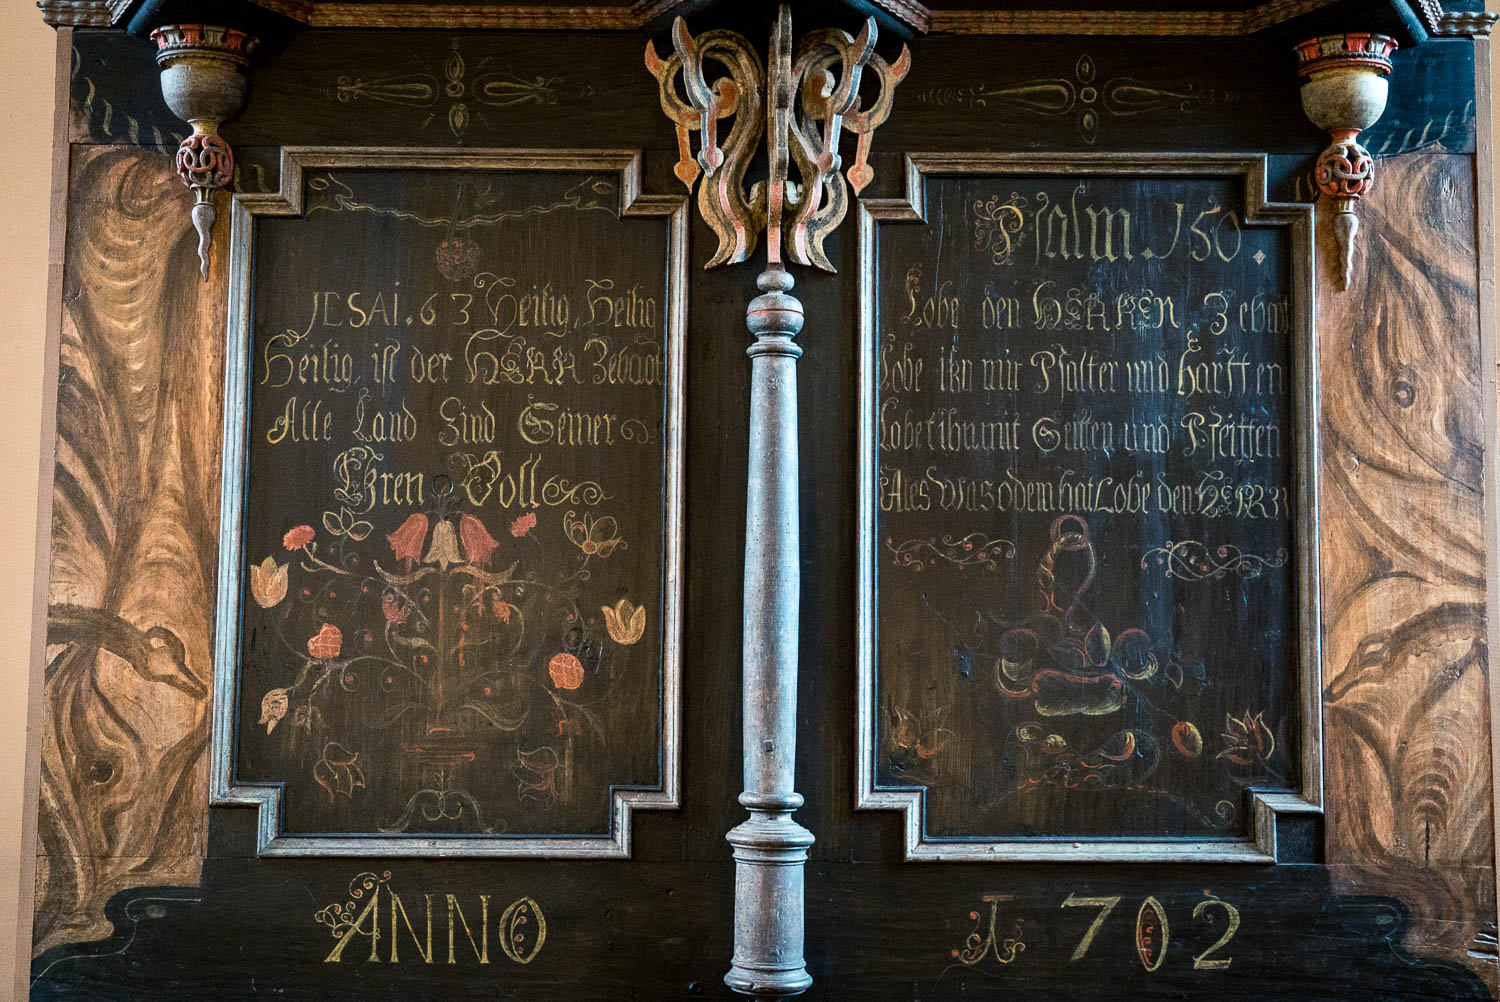 JESAI. 63 Heilig, Heilig
Heilig, ist der HERR Zebaot
Alle Land Sind Seiner
Ehren Voll
Psalm 150.
Lobe den HERREN Zebaot
Lobe ihn mit Psalter und harffen
Lobet ihn mit Seitten und Pfeiffen
Alles was odem hat Lobe den HERRN
ANNO
1702